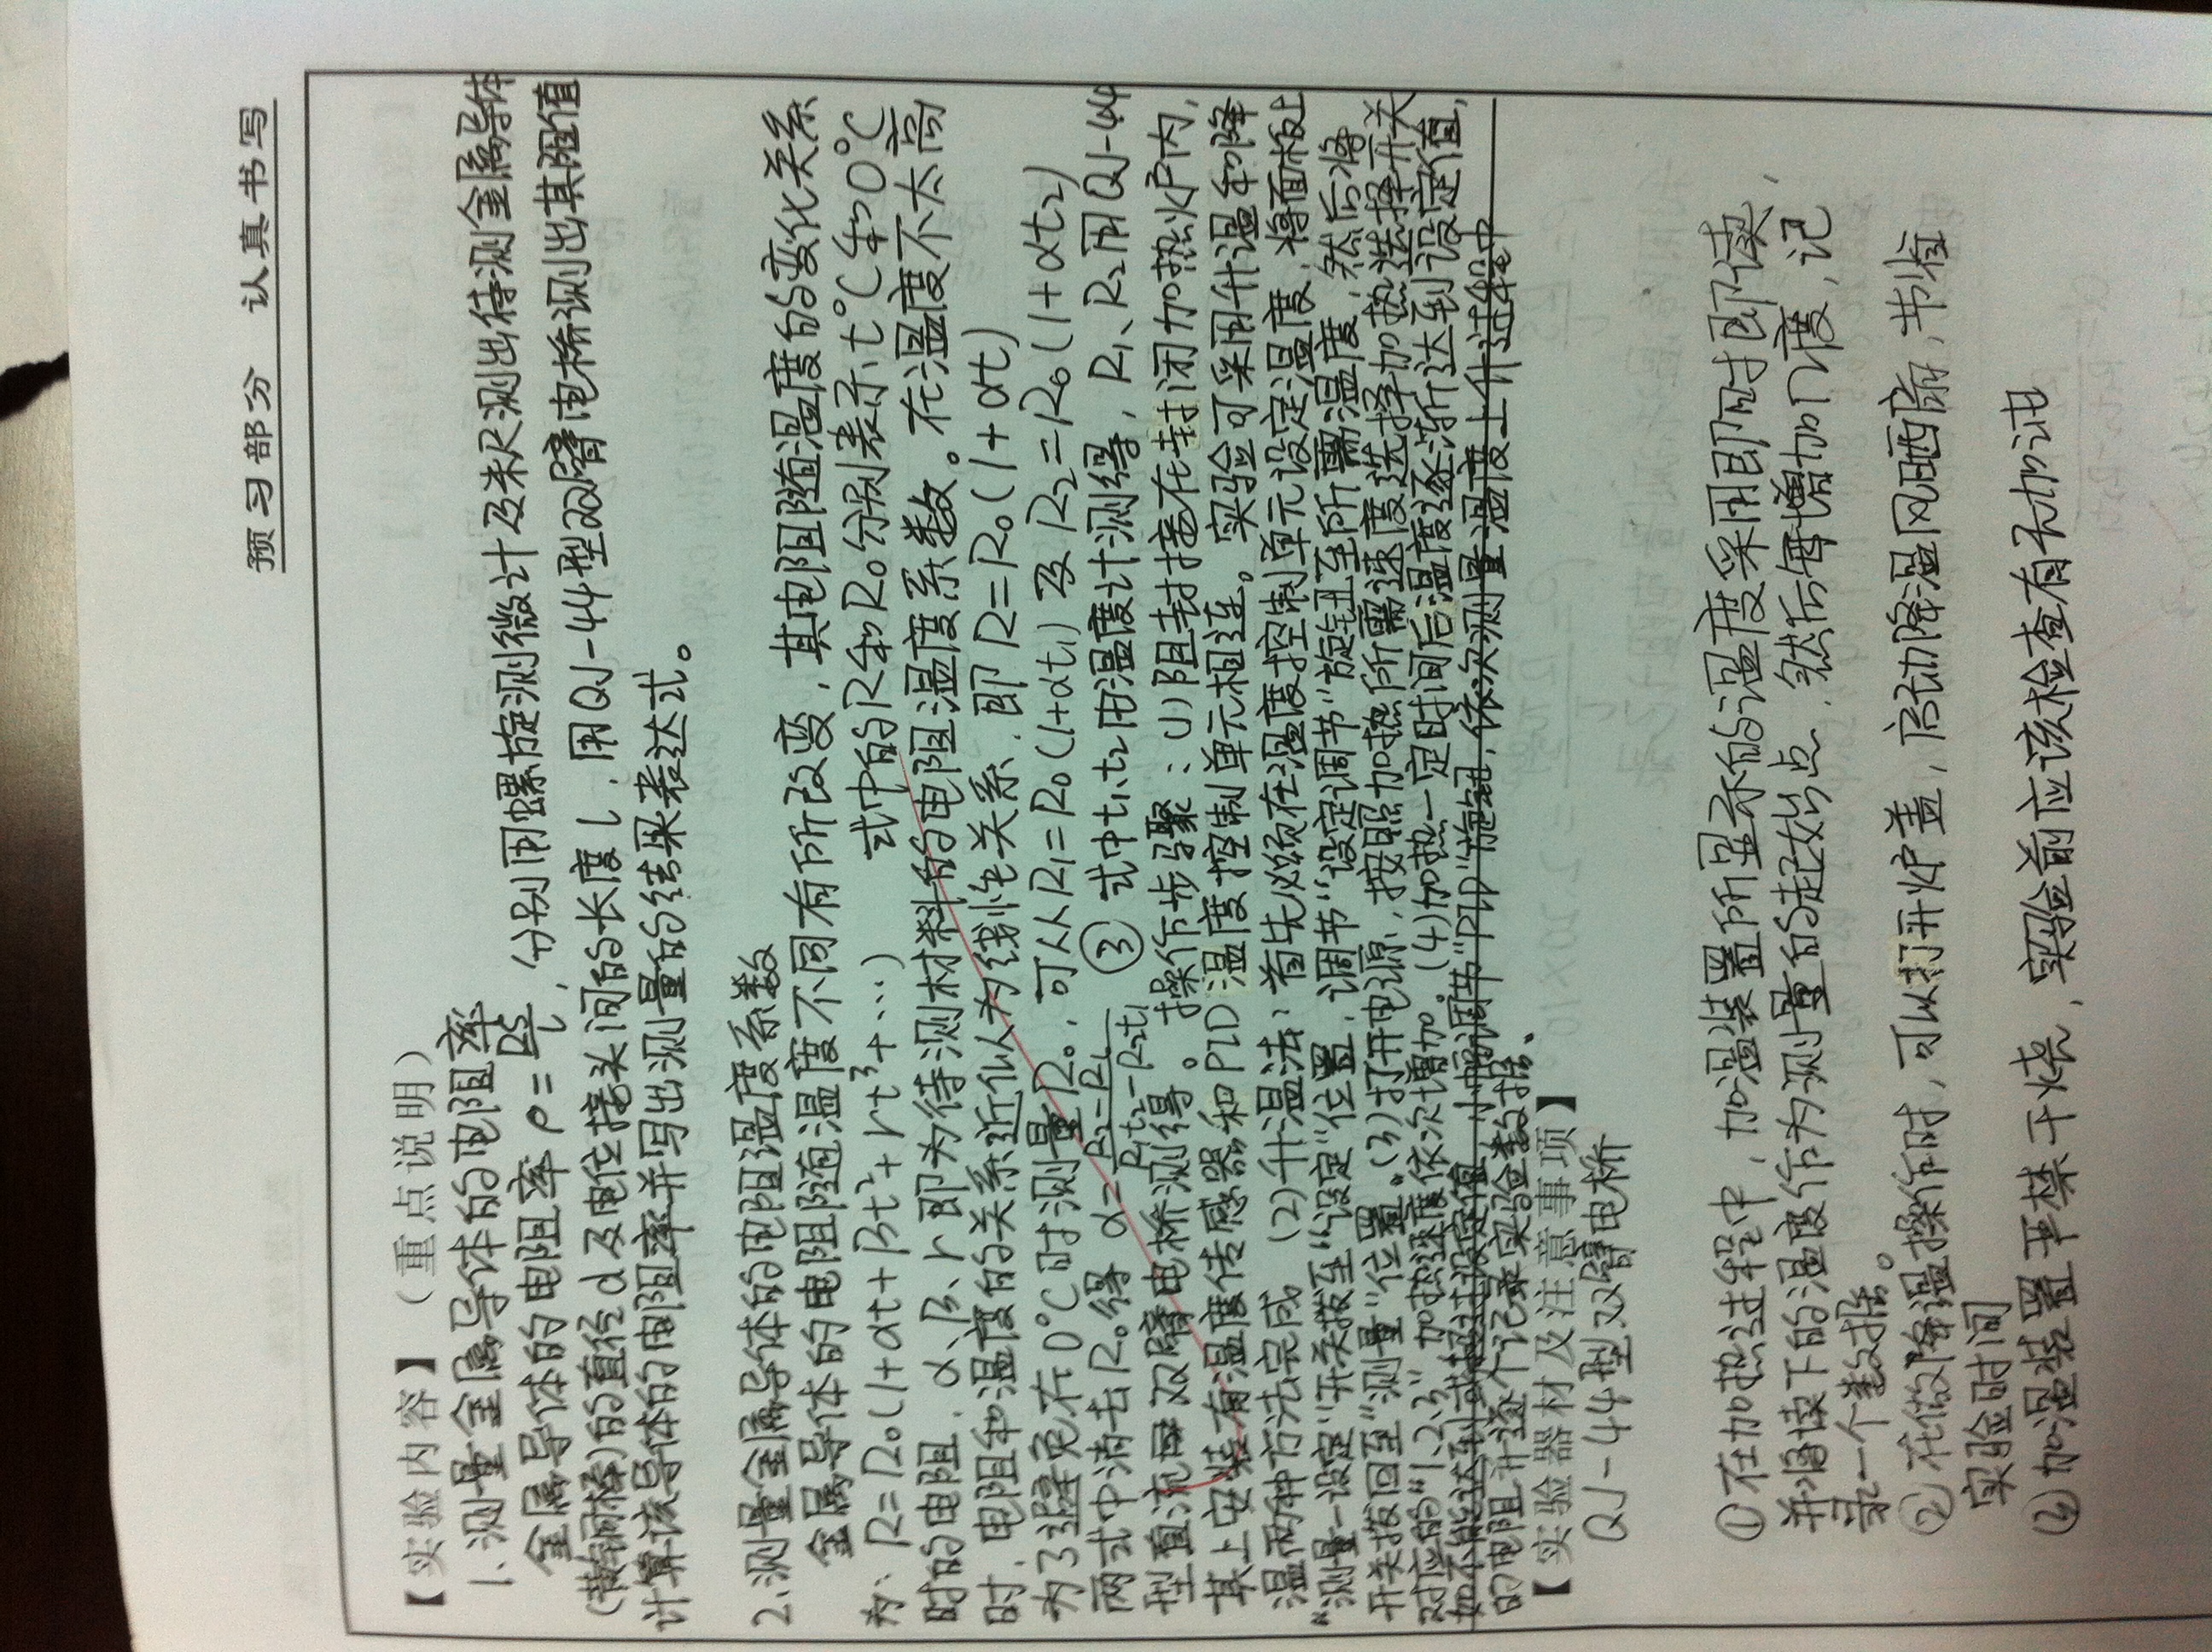 预习部分 认真书写
【实验内容】（重点说明）
1. 测量金属导体的电阻率
金属导体的电阻率 ρ = RS/l，分别用螺旋测微计及米尺测出待测金属导体
(黄铜棒)的直径d及电位接头间的长度l，用QJ-44型双臂电桥测出其阻值
计算该导体的电阻率并写出测量的结果表达式。
2. 测量金属导体的电阻温度系数
金属导体的电阻随温度不同有所改变，其电阻随温度的变化关系
为：R=R₀(1+αt+βt²+rt³+…) 式中的R和R₀分别表示t℃和0℃
时的电阻，α、β、r即为待测材料的电阻温度系数。在温度不太高
时，电阻和温度的关系近似为线性关系，即 R=R₀(1+αt)
为了避免在0℃时测量R₀，可从R₁=R₀(1+αt₁)及 R₂=R₀(1+αt₂)
两式中消去R₀得 α=(R₂-R₁)/(R₁t₂-R₂t₁) ③ 式中t₁、t₂由温度计测得，R₁、R₂用QJ-44
型直流双臂电桥测得。操作步骤：(1)阻封接在封闭加热炉内，
其上安装有温度传感器和PID温度控制单元相连。实验可采用升温和降
温两种方法完成 (2)升温法：首先必须在温度控制单元设定温度，将面板上
“测量-设定”开关拨至“设定”位置，调节“设定调节”旋钮至所需温度，然后将
开关拨回至“测量”位置。(3)打开电源，按照加热所需速度选择加热选择开关
对应的“1.2.3”，加热速度依次增加。(4)加热一定时间后温度逐渐达到设定值，
如不能达到或超过设定值，小幅调节“PID”旋钮，依次测量温度上升过程中
的电阻并逐个记录实验数据。
【实验器材及注意事项】
QJ-44型双臂电桥
①在加热过程中，加温装置所显示的温度采用即时即读，
并将读下的温度作为测量的起始点，然后每增加几度，记
录一个数据。
②在做降温操作时，可以打开炉盖，启动降温风扇，节省
实验时间
③加温装置严禁干烧，实验前应该检查有无加油